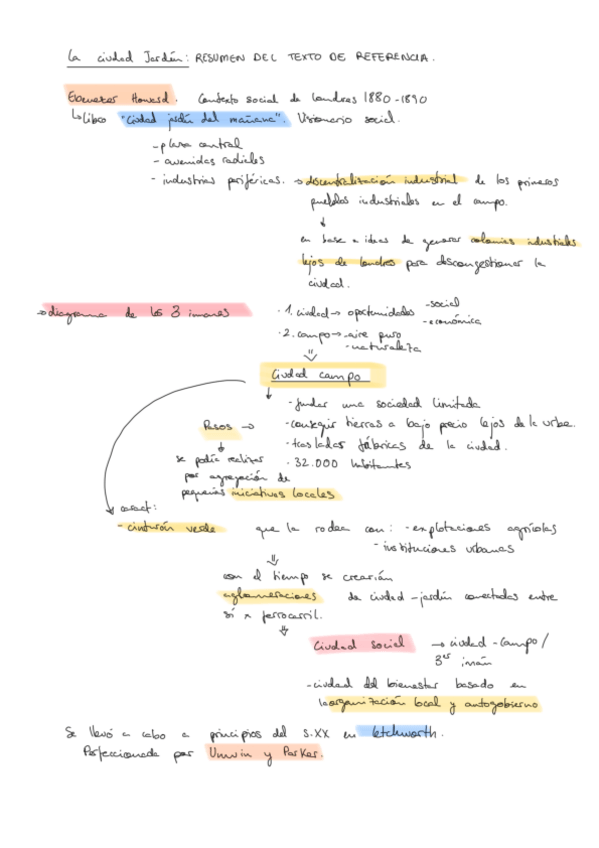 La ciudad Jardín: RESUMEN DEL TEXTO DE REFERENCIA.
Ebenezer Howard. Contexto social de Londres 1880-1890
↳ Libro "Ciudad jardín del mañana". Visionario social.
- plaza central
- avenidas radiales
- industrias periféricas. → descentralización industrial de los primeros
pueblos industriales en el campo.
↓
en base a ideas de generar colonias industriales
lejos de Londres para descongestionar la
ciudad.
→ diagrama de los 3 imanes
· 1. ciudad → oportunidades - social
- económica
· 2. campo → - aire puro
- naturaleza
⇓
Ciudad campo
↓
- fundar una sociedad limitada
Pasos → - conseguir tierras a bajo precio lejos de la urbe.
↓ - trasladar fábricas de la ciudad.
se podía realizar · 32.000 habitantes
por agregación de
pequeñas iniciativas locales
caract:
- cinturón verde que la rodea con: - explotaciones agrícolas
- instituciones urbanas
⇓
con el tiempo se crearían
aglomeraciones de ciudad-jardín conectadas entre
sí x ferrocarril.
⇓
Ciudad social → ciudad-campo /
3er imán
- ciudad del bienestar basado en
la organización local y autogobierno
Se llevó a cabo a principios del s.XX en Letchworth.
Perfeccionada por Unwin y Parker.